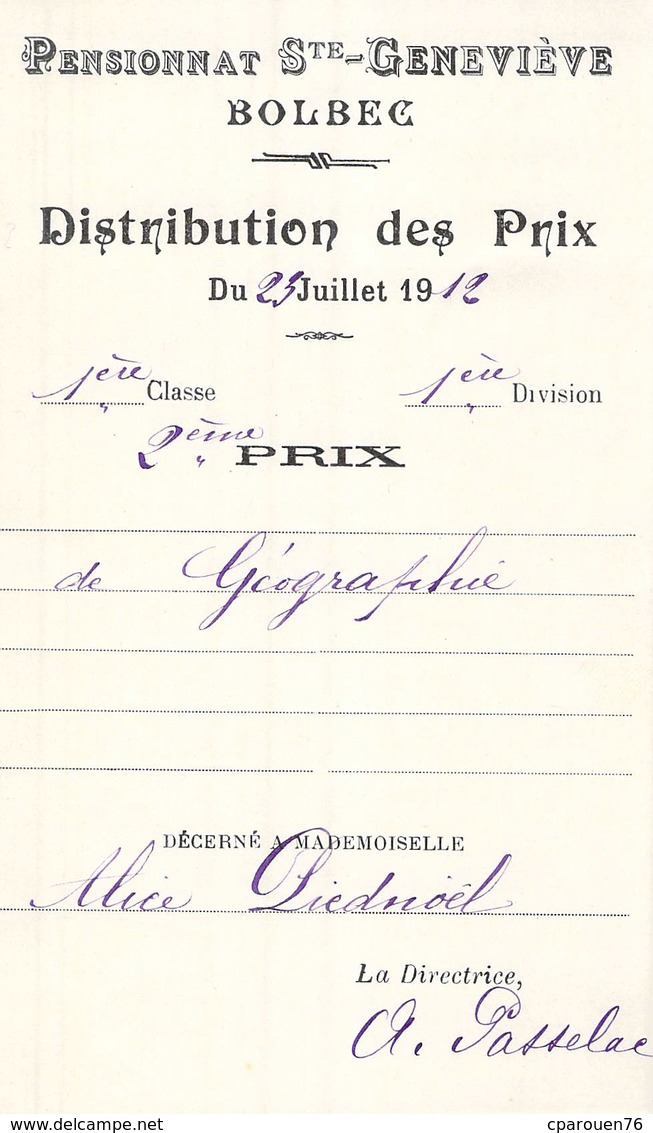 PENSIONNAT STE-GENEVIÈVE
BOLBEC
Distribution des Prix
Du 23 Juillet 1912
1ère Classe 1ère Division
2ème PRIX
de Géographie
DÉCERNÉ A MADEMOISELLE
Alice Piednoël
La Directrice,
A. Passelac
delcampe.net
cparouen76